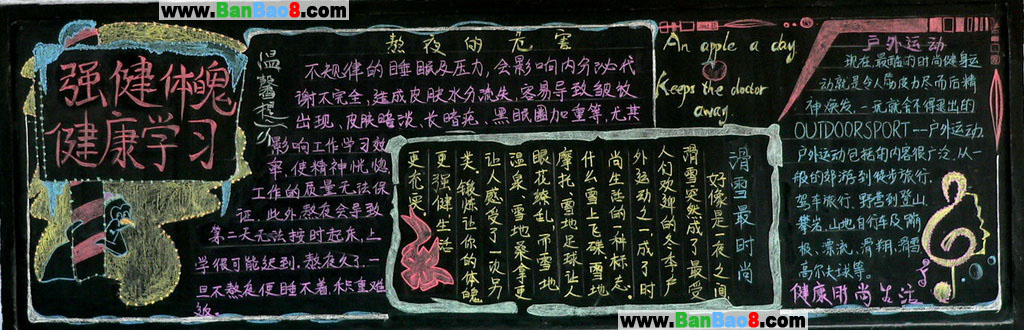 www.BanBao8.com
www.BanBao8.com
强健体魄
健康学习
温馨提示
熬夜的危害
不规律的睡眠及压力,会影响内分泌代
谢不完全,造成皮肤水分流失,容易导致皱纹
出现,皮肤暗淡、长暗疮、黑眼圈加重等,尤其
影响工作学习效
率,使精神恍惚,
工作的质量无法保
证,此外熬夜会导致
第二天无法按时起床,上
学很可能迟到,熬夜久了,一
旦不熬夜便睡不着,积重难
返。
An apple a day
Keeps the doctor
away
滑雪最时尚
好像是一夜之间
滑雪突然成了最受
人们欢迎的冬季户
外运动之一,成了时
尚生活的一种标志。
什么雪上飞碟、雪地
摩托、雪地足球让人
眼花缭乱,而雪地
温泉、雪地桑拿更
让人感受了一次另
类。锻炼让你的体魄
更强健生活
更充实。
户外运动
现在最酷的时尚健身运
动就是令人筋疲力尽而后精
神焕发,一玩就舍不得退出的
OUTDOORSPORT--户外运动.
户外运动包括的内容很广泛,从一
般的郊游到徒步旅行.
驾车旅行,野营到登山.
攀岩,山地自行车及滑
板、漂流,滑翔,滑雪
高尔夫球等。
健康时尚生活
www.BanBao8.com